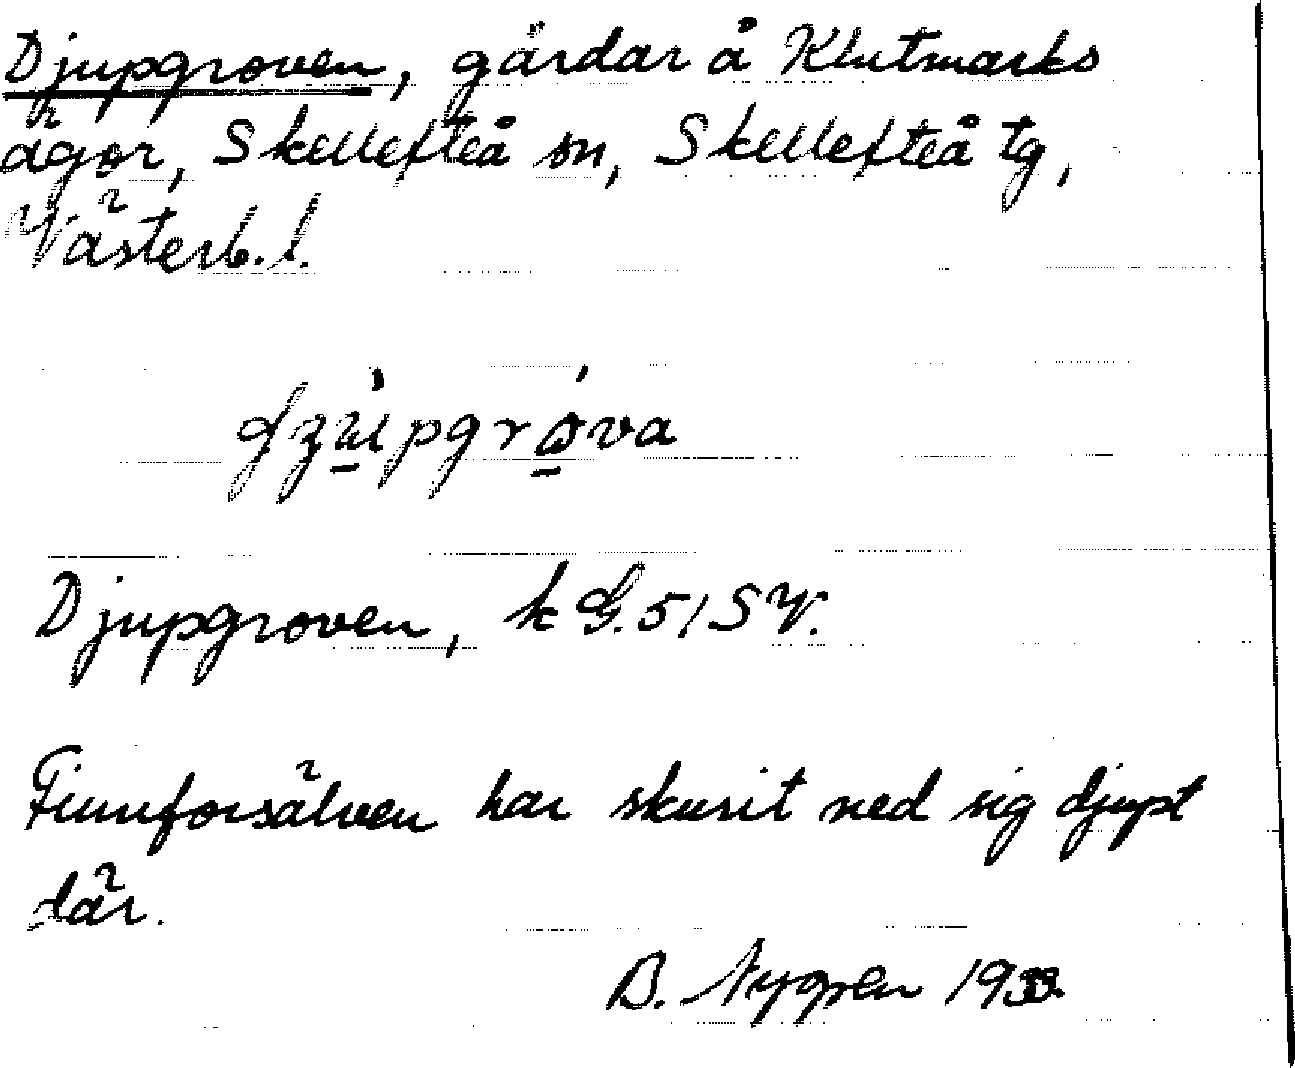 Djupgroven, gärdar å Klutmarks
ägor, Skellefteå sn, Skellefteå tg,
Västerb. l.
Djupgroven, k G. 51 SV.
Finnforsälven har skurit ned sig djupt
där.
B. Nygren